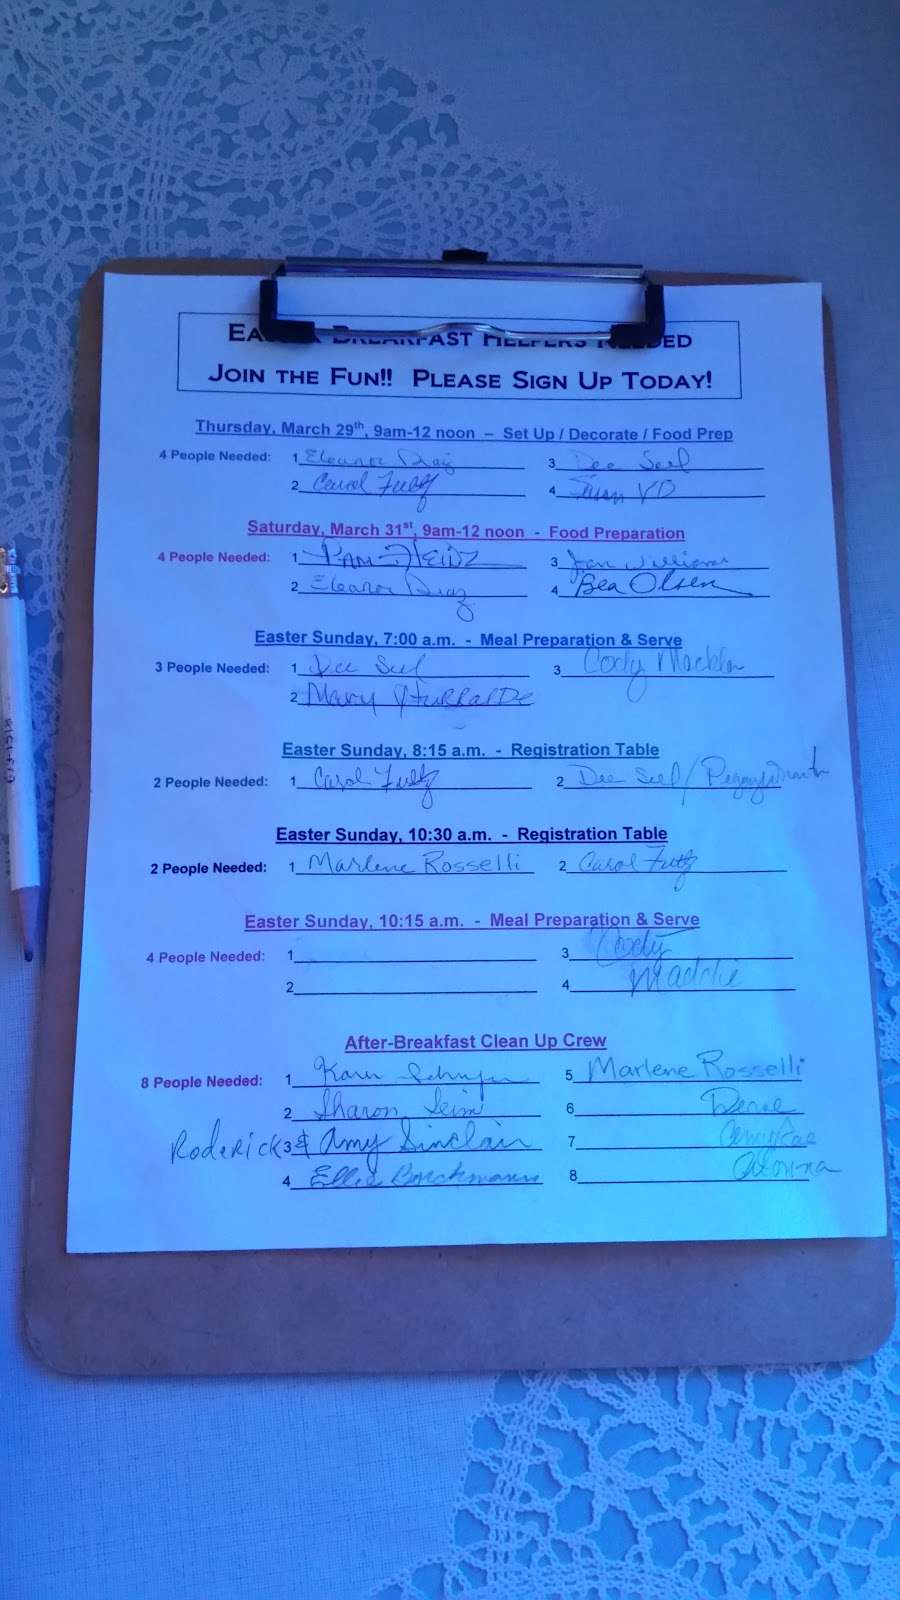 EASTER BREAKFAST HELPERS NEEDED
JOIN THE FUN!! PLEASE SIGN UP TODAY!
Thursday, March 29th, 9am-12 noon – Set Up / Decorate / Food Prep
4 People Needed: 1 Eleanor Diaz 3 Dee Seel
2 Carol Fultz 4 Susan VD
Saturday, March 31st, 9am-12 noon - Food Preparation
4 People Needed: 1 PAM HEINZ 3 Jan Williams
2 Eleanor Diaz 4 Bea Olsen
Easter Sunday, 7:00 a.m. - Meal Preparation & Serve
3 People Needed: 1 Dee Seel 3 Cody
2 Mary
Easter Sunday, 8:15 a.m. - Registration Table
2 People Needed: 1 Carol Fultz 2 Dee Seel / Peggy
Easter Sunday, 10:30 a.m. - Registration Table
2 People Needed: 1 Marlene Rosselli 2 Carol Fultz
Easter Sunday, 10:15 a.m. - Meal Preparation & Serve
4 People Needed: 1 3 Cody
2 4 Maddie
After-Breakfast Clean Up Crew
8 People Needed: 1 Karen 5 Marlene Rosselli
2 Sharon Seim 6
Roderick 3 & Amy Sinclair 7
4 Ellie Borckmann 8